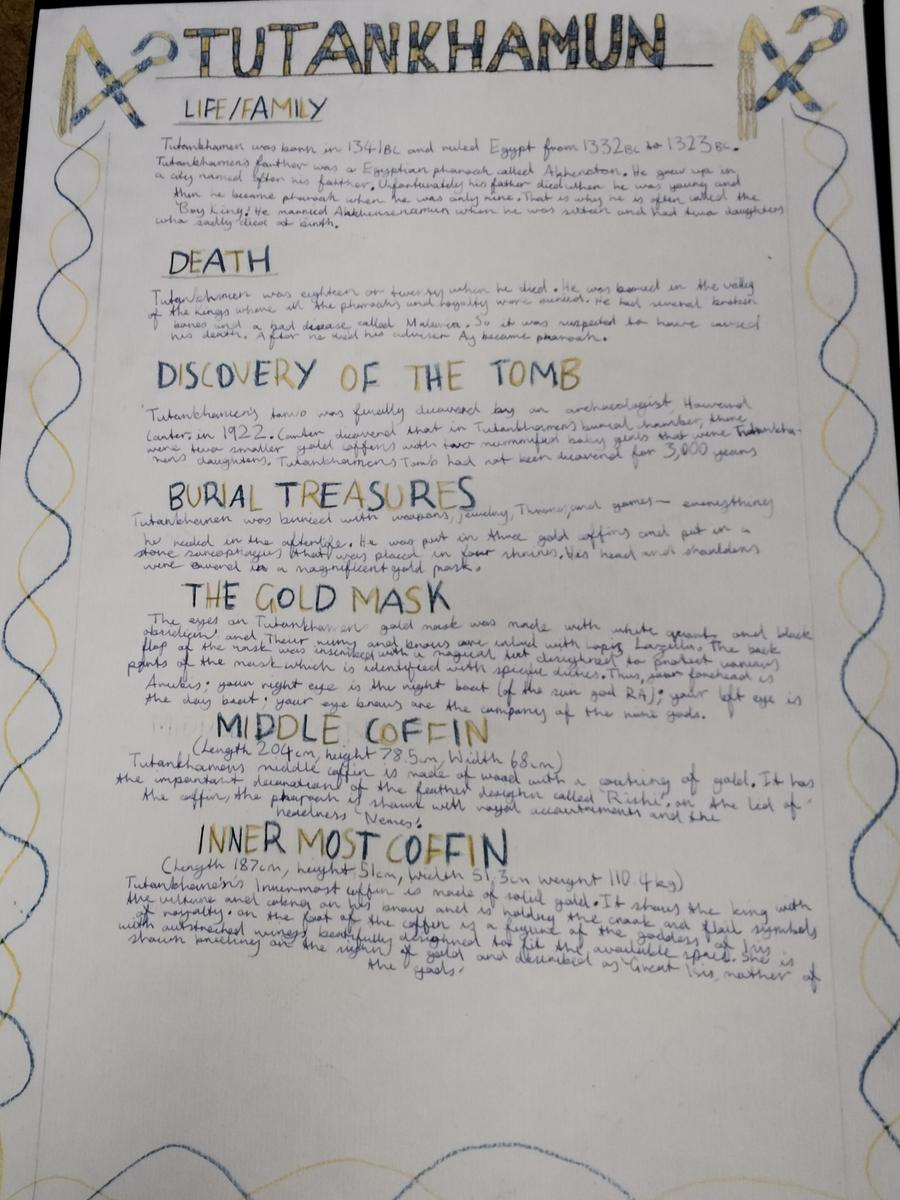 TUTANKHAMUN
LIFE/FAMILY
Tutankhamen was born in 1341BC and ruled Egypt from 1332BC to 1323BC.
Tutankhamen's father was a Egyptian pharoah called Akhenaton. He grew up in
a city named after his father. Unfortunately his father died when he was young and
then he became pharoah when he was only nine. That is why he is often called the
'Boy King'. He married when he was sixteen and had two daughters
who sadly died at birth.
DEATH
Tutankhamen was eighteen or twenty when he died. He was buried in the valley
of the Kings where all the pharoahs and royalty were buried. He had several broken
bones and a bad disease called Malaria. So it was suspected to have caused
his death. After he died his adviser Ay became pharoah.
DISCOVERY OF THE TOMB
Tutankhamen's tomb was finally discovered by an archaeologist Howard
Carter, in 1922. Carter discovered that in Tutankhamen's burial chamber, there
were two smaller gold coffins with two mummified baby girls that were Tutankha-
men's daughters. Tutankhamen's Tomb had not been discovered for 3,000 years
BURIAL TREASURES
Tutankhamen was buried with weapons, jewelry, Thrones, and games - everything
he needed in the afterlife. He was put in three gold coffins and put in a
stone sarcophagus that was placed in four shrines. His head and shoulders
were covered in a magnificent gold mask.
THE GOLD MASK
The eyes on Tutankhamen gold mask was made with white quartz and black
obsidian and Their rims and brows are inlaid with Lapiz Lazulie. The back
flap of the mask was inscribed with a magical text designed to protect various
parts of the mask which is identified with specific duties. Thus, your forehead is
Anubis; your right eye is the night boat (of the sun god RA); your left eye is
the day boat; your eye brows are the company of the nine gods.
MIDDLE COFFIN
(Length 204cm, height 78.5cm, Width 68cm)
Tutankhamons middle coffin is made of wood with a coating of gold. It has
the important decoration of the feather design called 'Rishi'. on the lid of
the coffin, the pharaoh is shown with royal accoutrements and the
headress 'Nemes'.
INNER MOST COFFIN
(Length 187cm, height 51cm, Width 51,3cm weight 110.4kg)
Tutankhamen's Innermost coffin is made of solid gold. It shows the king with
the vulture and cobra on his brow and is holding the crook and flail symbols
of royalty. on the foot of the coffin is a figure of the goddess of Isis
with outstreched wings, beautifully designed to fit the available space. She is
shown kneeling on the sign of gold and described as 'Great Isis, mother of
the gods'